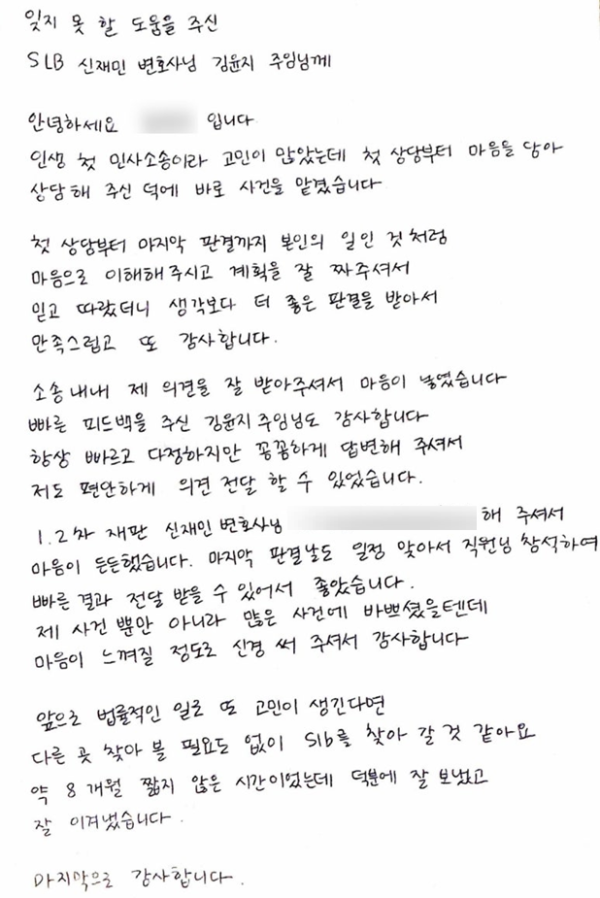 잊지 못 할 도움을 주신
SLB 신재민 변호사님 김윤지 주임님께
안녕하세요 입니다
인생 첫 민사소송이라 고민이 많았는데 첫 상담부터 마음을 담아
상담해 주신 덕에 바로 사건을 맡겼습니다
첫 상담부터 마지막 판결까지 본인의 일인 것처럼
마음으로 이해해주시고 계획을 잘 짜주셔서
믿고 따랐더니 생각보다 더 좋은 판결을 받아서
만족스럽고 또 감사합니다.
소송내내 제 의견을 잘 받아주셔서 마음이 놓였습니다
빠른 피드백을 주신 김윤지주임님도 감사합니다
항상 빠르고 다정하지만 꼼꼼하게 답변해 주셔서
저도 편안하게 의견 전달 할 수 있었습니다.
1.2차 재판 신재민변호사님 해 주셔서
마음이 든든했습니다. 마지막 판결날도 일정 맞아서 직원님 참석하여
빠른 결과 전달 받을 수 있어서 좋았습니다.
제 사건 뿐만 아니라 많은 사건에 바쁘셨을텐데
마음이 느껴질 정도로 신경 써 주셔서 감사합니다
앞으로 법률적인 일로 또 고민이 생긴다면
다른 곳 찾아 볼 필요도 없이 Slb를 찾아 갈 것 같아요
약 8개월 짧지 않은 시간이었는데 덕분에 잘 보냈고
잘 이겨냈습니다.
마지막으로 감사합니다.